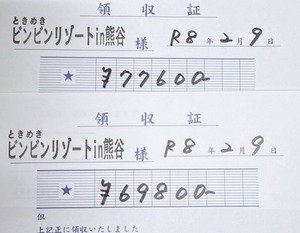 領収証
ときめき
ビンビンリゾートin熊谷 様 R8年2月9日
★ ¥77600-
領収証
ときめき
ビンビンリゾートin熊谷 様 R8年2月9日
★ ¥69800-
但
上記正に領収いたしました